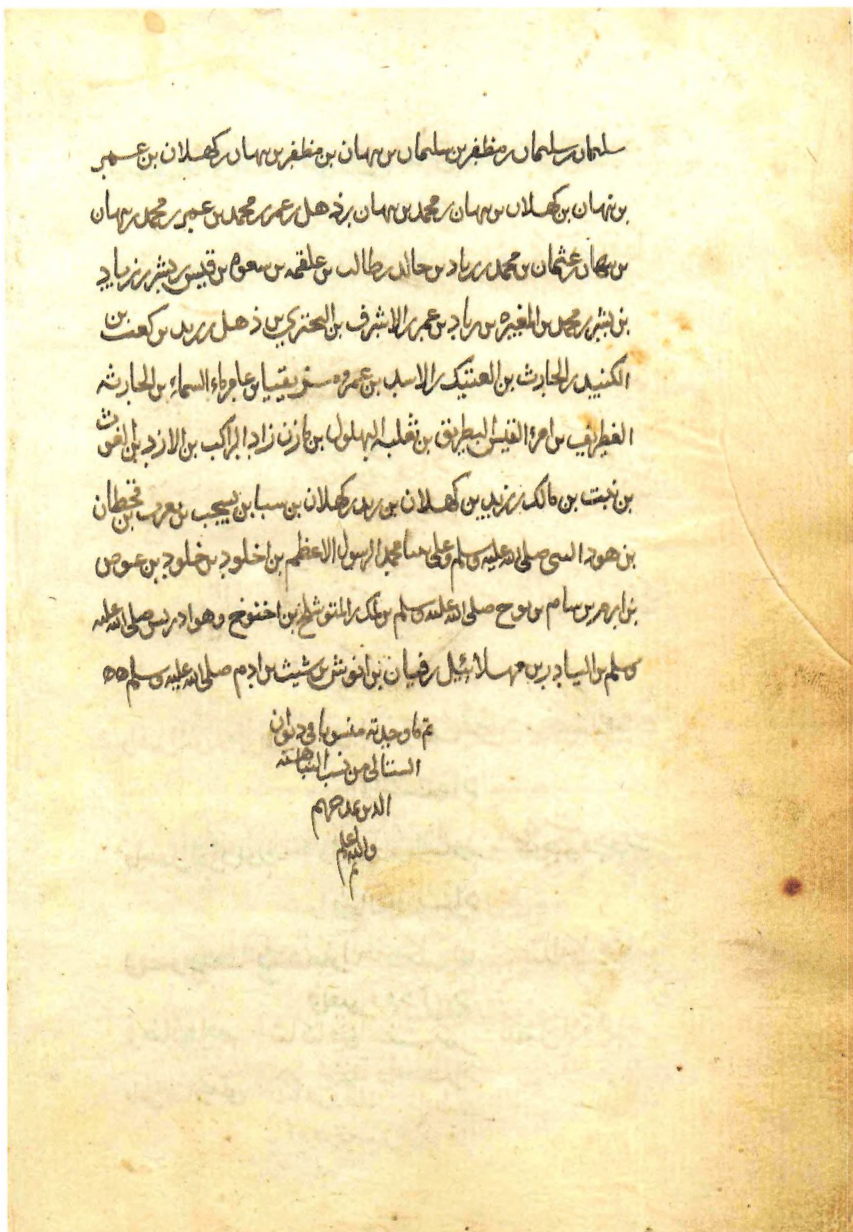 سليمان بن سليمان بن مظفر بن سليمان بن نبهان بن مظفر بن نبهان بن كهلان بن عمر
بن نبهان بن كهلان بن نبهان بن محمد بن نبهان بن ذهل بن عمر بن محمد بن عمر بن محمد بن نبهان
بن نبهان بن عثمان بن محمد بن زياد بن خالد بن طالب بن علقمه بن سعوه بن قيس بن بشر بن زياد
بن بشر بن محمد بن المغيره بن زياد بن عمر بن الاشرف بن البختري بن ذهل بن زيد بن كعب بن
الكنيد بن الحارث بن العتيك بن الاسد بن عمرو بن عامر ماء السماء بن الحارثه
الغطريف بن امرئ القيس البطريق بن ثعلبه البهلول بن مازن زاد الراكب بن الازد بن الغوث
بن نبت بن مالك بن زيد بن كهلان بن زيد بن كهلان بن سبا بن يشجب بن يعرب بن قحطان
بن هود النبي صلى الله عليه وسلم وعلى نبينا محمد الرسول الاعظم بن اخلود بن خلود بن عوص
بن ارم بن سام بن نوح صلى الله عليه وسلم بن لمك بن المتوشلخ بن اخنوخ وهو ادريس صلى الله عليه
وسلم بن اليادر بن مهلائيل بن فيان بن انوش بن شيث بن ادم صلى الله عليه وسلم ٥٥
تم ما وجدته منسوبا في ديوان
الستالي من نسب النباهنه
الذين مدحهم
والله اعلم
تم